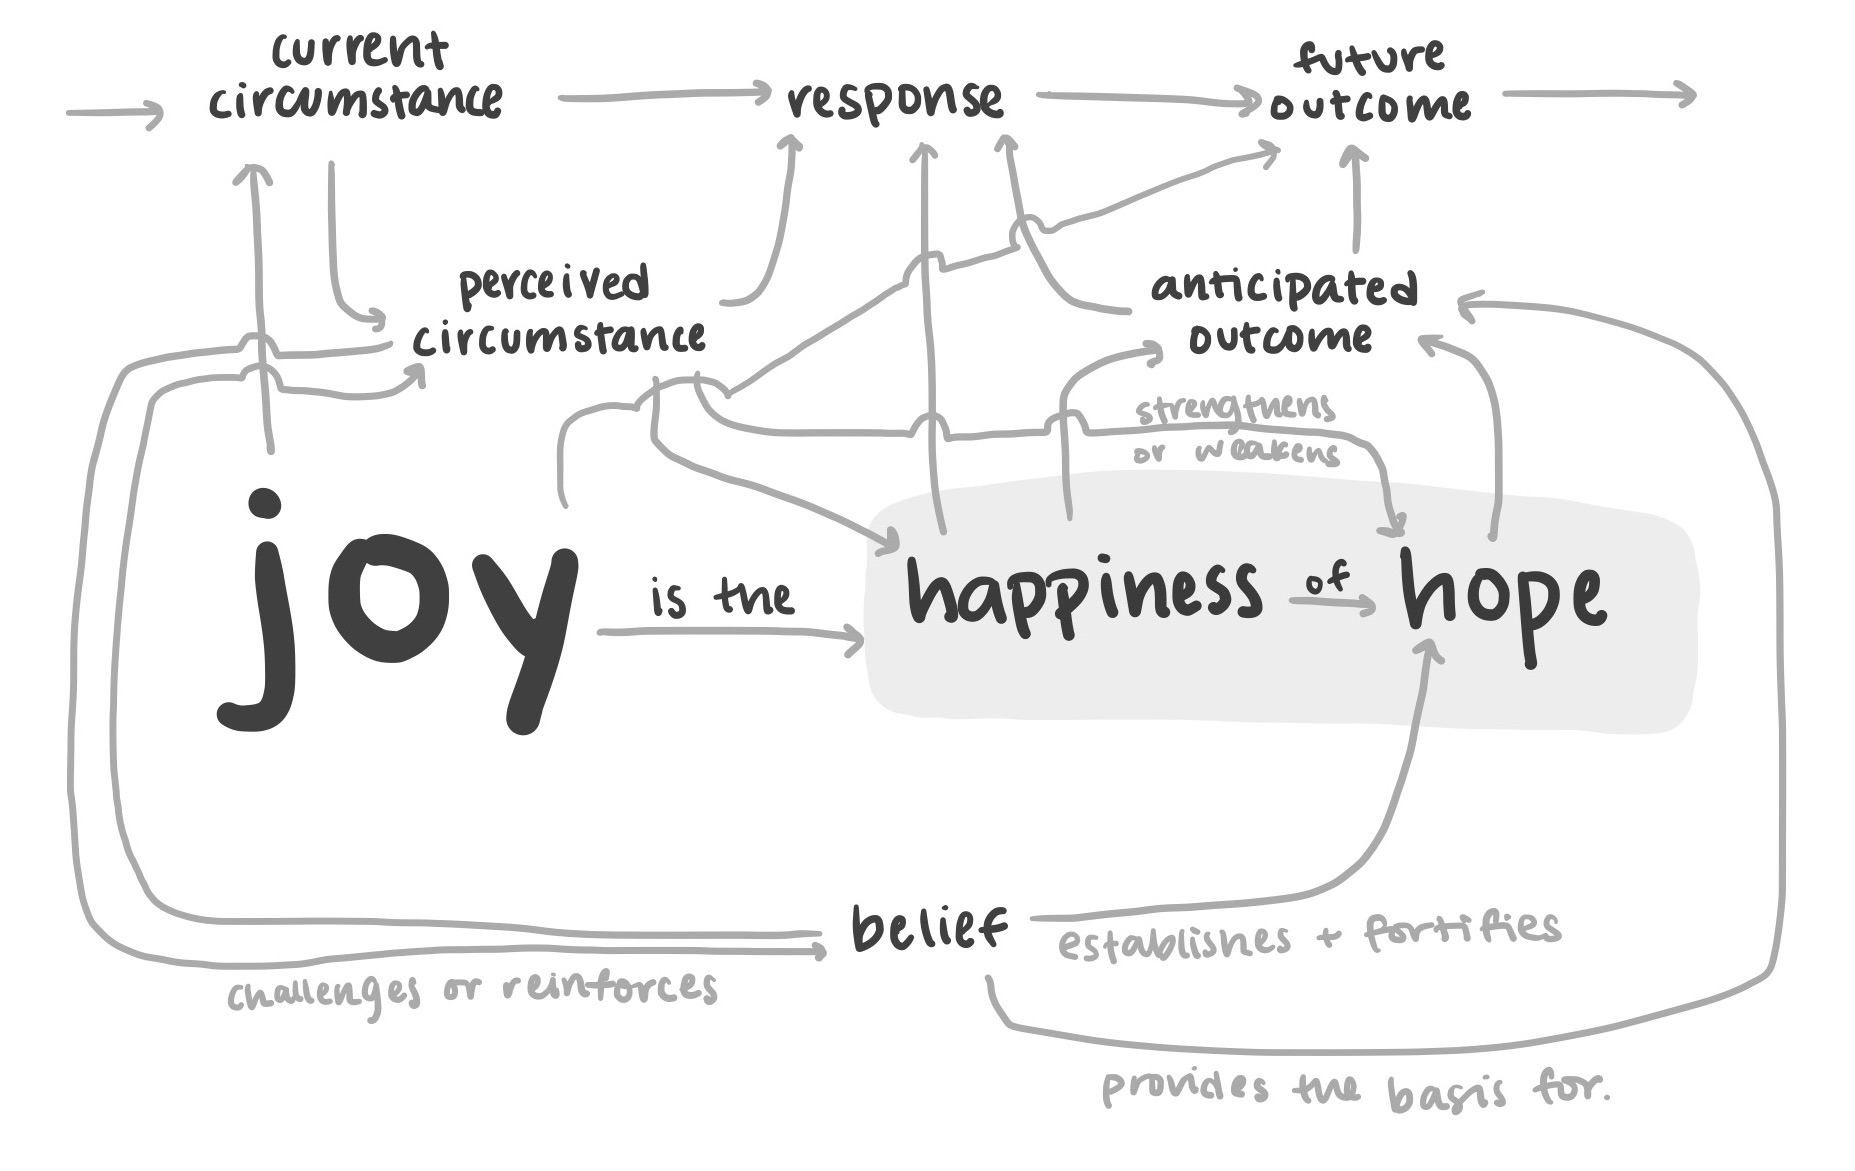 current
circumstance
response
future
outcome
perceived
circumstance
anticipated
outcome
strengthens
or weakens
joy is the happiness of hope
belief
establishes + fortifies
challenges or reinforces
provides the basis for.